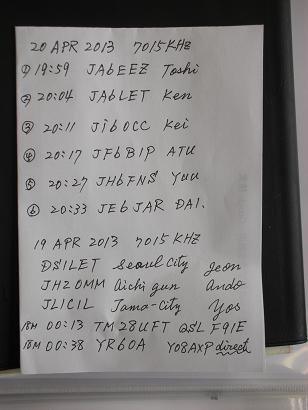 20 APR 2013 7015KHz
① 19:59 JA6EEZ Toshi
② 20:04 JA6LET Ken
③ 20:11 Ji6OCC Kei
④ 20:17 JF6BIP ATU
⑤ 20:27 JH6FNS Yuu
⑥ 20:33 JE6JAR DAI.
19 APR 2013 7015 KHZ
DS1LET Seoul City Jeon
JH2OMM Aichi gun Ando
JL1CIL Tama-City Yos
18M 00:13 TM28UFT QSL F9IE
18M 00:38 YR60A YO8AXP direct